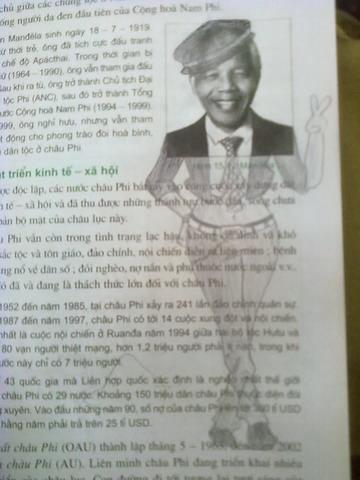 chủ giữa các chủng tộc ở
ống người da đen đầu tiên của Cộng hoà Nam Phi.
n Manđêla sinh ngày 18 - 7 - 1919.
ừ thời trẻ, ông đã tích cực đấu tranh
chế độ Apácthai. Trong thời gian bị
(1964 – 1990), ông vẫn tham gia đấu
au khi ra tù, ông trở thành Chủ tịch Đại
tộc Phi (ANC), sau đó trở thành Tổng
ước Cộng hoà Nam Phi (1994 – 1999).
999, ông nghỉ hưu, nhưng vẫn tham
t động cho phong trào đòi hoà bình,
dân tộc ở châu Phi.
t triển kinh tế – xã hội
ợc độc lập, các nước châu Phi bắt tay vào công cuộc xây dựng đất
h tế – xã hội và đã thu được những thành tựu bước đầu, song chưa
bản bộ mặt của châu lục này.
u Phi vẫn còn trong tình trạng lạc hậu, không ổn định và khó
sắc tộc và tôn giáo, đảo chính, nội chiến diễn ra liên miên ; bệnh
ng nổ về dân số ; đói nghèo, nợ nần và phụ thuộc nước ngoài v.v..
ó đã và đang là thách thức lớn đối với châu Phi.
1952 đến năm 1985, tại châu Phi xảy ra 241 lần đảo chính quân sự.
1987 đến năm 1997, châu Phi có tới 14 cuộc xung đột và nội chiến.
nhất là cuộc nội chiến ở Ruanđa năm 1994 giữa hai bộ tộc Hutu và
80 vạn người thiệt mạng, hơn 1,2 triệu người phải tị nạn, trong khi
ước này chỉ có 7 triệu người.
43 quốc gia mà Liên hợp quốc xác định là nghèo nhất thế giới
châu Phi có 29 nước. Khoảng 150 triệu dân châu Phi thuộc diện đói
xuyên. Vào đầu những năm 90, số nợ của châu Phi lên tới 300 tỉ USD
hằng năm phải trả trên 25 tỉ USD.
ất châu Phi (OAU) thành lập tháng 5 – đến năm 2002
châu Phi (AU). Liên minh châu Phi đang triển khai nhiều